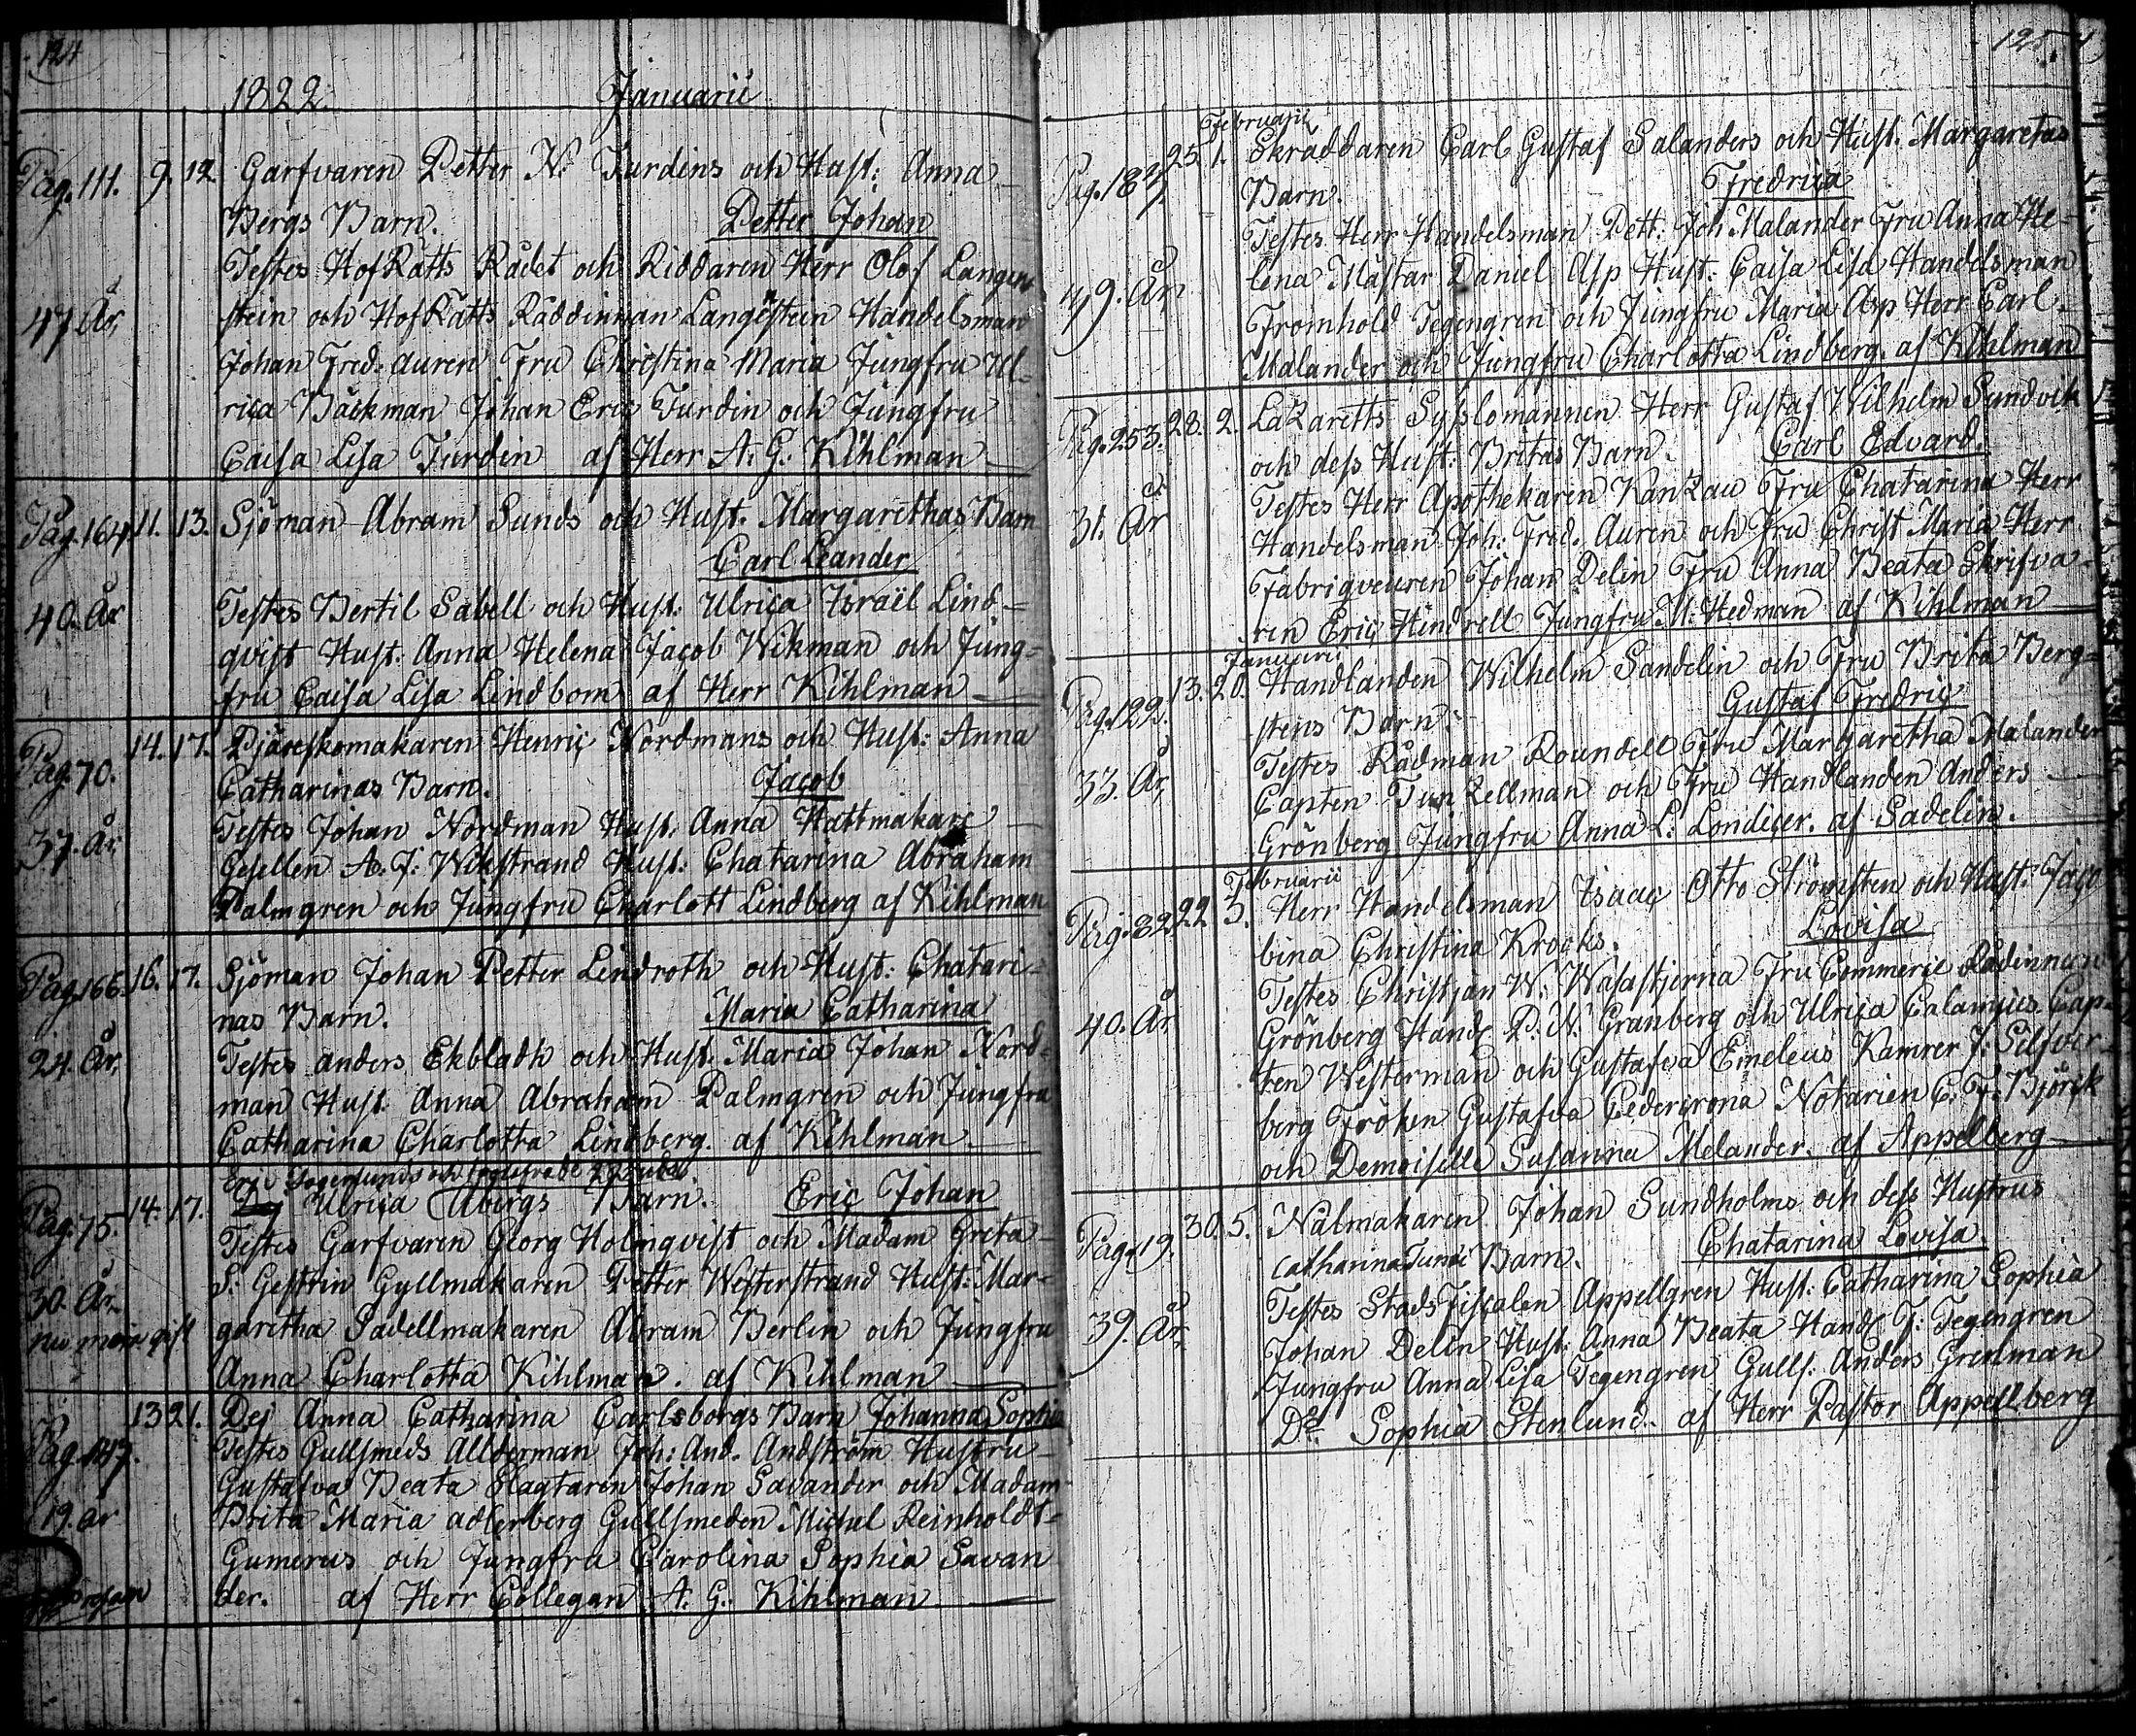 124
1822. Januarii
Pag. 111. 9. 12. Garfvaren Petter N: Turdins och Hust: Anna
Bergs Barn. Petter Johan
Testes HofRätts Rådet och Riddaren Herr Olof Langen
47 År, stein och HofRätts Råddinnan Langenstein Handelsman
Johan Fred. Auren Fru Christina Maria Jungfru Ul-
rica Bäckman Johan Eric Turdin och Jungfru
Caisa Lisa Turdin af Herr A. G. Kihlman
Pag. 164. 11. 13. Sjöman Abram Sunds och Hust. Margarethas Barn
Carl Leander
40. År Testes Bertil Sabell och Hust: Ulrica Israël Lind-
qvist Hust. Anna Helena Jacob Wikman och Jung=
fru Caisa Lisa Lindbom af Herr Kihlman
Pag. 70. 14. 17. Henric Nordmans och Hust: Anna
Catharinas Barn. Jacob
Testes Johan Nordman Hust. Anna Hattmakare
37. År, Gesellen A. J: Wikstrand Hust: Chatarina Abraham
Palmgren och Jungfru Charlott Lindberg af Kihlman
Pag. 166. 16. 17. Sjöman Johan Petter Lindroth och Hust: Chatari=
nas Barn. Maria Catharina
24. År, Testes anders Ekbladh och Hust. Maria Johan Nord=
man Hust. Anna Abraham Palmgren och Jungfru
Catharina Charlotta Lindberg. af Kihlman
Eric och
Pag. 75. 14. 17. Ulrica Åbergs Barn. Eric Johan
Testes Garfvaren Georg Holmqvist och Madam Greta
30. År S. Gestrin Gyllmakaren Petter Westerstrand Hust: Mar=
garetha Sadellmakaren Abram Berlin och Jungfru
Anna Charlotta Kihlman. af Kihlman
Pag. 147. 13 21. Dej Anna Catharina Carlsborgs Barn Johanna Sophia
Testes Gullsmeds Allderman Joh: And. Andström Hustru
Gustafva Beata Slagtaren Johan Savander och Madam
19. år Brita Maria adlerberg Gullsmeden Michel Reinholdt=
Gumerus och Jungfru Carolina Sophia Savan
der. af Herr Collegan A. G. Kihlman
125.
Februarii
Pag. 187. 25. 1. Skraddaren Carl Gustaf Salanders och Hust. Margaretas
Barn. Fredrica
Testes Herr Handelsman Pett: Joh Malander Fru Anna He-
49. År, lena Mästar Daniel Asp Hust: Caisa Lisa Handelsman
Fromhold Tegengren och Jungfru Maria Asp Herr Carl
Malander och Jungfru Charlotta Lindberg. af Kihlman
Pag. 253. 28. 2. LaZaretts Sysslomannen Herr Gustaf Wilhelm Sundvik
och dess Hust: Britas Barn. Carl Edvard.
31. År Testes Herr Apothekaren KanZau Fru Chatarina Herr
Handelsman Joh: Fred. Auren och Fru Christ Maria Herr
Fabrigveuren Johan Delin Fru Anna Beata Skrifva-
ren Eric Hindrell Jungfru M: Hedman af Kihlman
Januarii
Pag. 129. 13. 20. Handlanden Wilhelm Sandelin och Fru Brita Berg=
stens Barn. Gustaf Fredric
33. År, Testes Rådman Roundell Fru Margaretha Malander
Capten TunZellman och Fru Handlanden Anders
Grönberg Jungfru Anna L: Londicer. af Sadelin.
Februarii
Pag. 82. 22 3. Herr Handelsman Isaac Otto Strömsten och Hust: Jaco
bina Christina Krooks. Lovisa
Testes Christjan W: Wasastjerna Fru Commerce Rådinnan
40. År Grönberg Hand P. N: Granberg och Ulrica Calamius Cap-
ten Westerman och Gustafva Emeleus Kamrer J: Silfver-
berg Fröken Gustafva Cedercrona Notarien C. F. Björck
och Demoiselle Susanna Melander. af Appelberg
Pag. 19. 30. 5. Nålmakaren Johan Sundholms och dess Hustrus
Catharina Barn. Chatarina Lovisa.
Testes StadsFiscalen Appellgren Hust: Catharina Sophia
39. År, Johan Delin Hust: Anna Beata Hand F: Tegengren
Jungfru Anna Lisa Tegengren Gulls: Anders Grenman
Do Sophia Stenlund. af Herr Pastor Appellberg